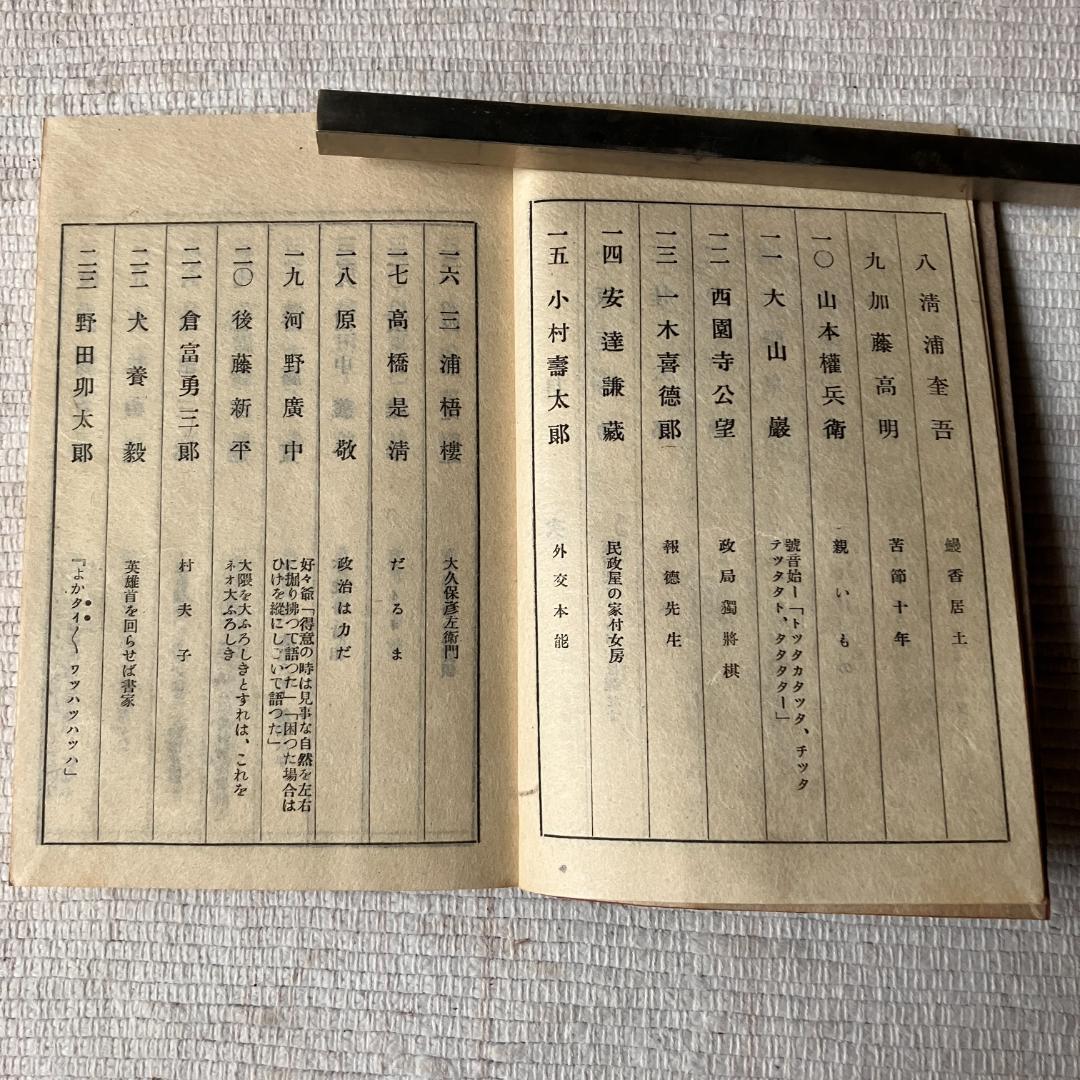 八 淸浦奎吾 鰻香居士
九 加藤高明 苦節十年
一〇 山本權兵衛 親いもの
一一 大山巖 號音始―「トツタカタツタ、チツタ
テツタタト、タタタター」
一二 西園寺公望 政局獨將棋
一三 一木喜德郎 報德先生
一四 安達謙藏 民政屋の家付女房
一五 小村壽太郎 外交本能
一六 三浦梧樓 大久保彥左衞門
一七 高橋是淸 だるま
一八 原敬 政治は力だ
一九 河野廣中 好々爺「得意の時は見事な自然を左右
に掘り拂つて語つた」「困つた場合は
ひけを縱にしごいて語つた」
二〇 後藤新平 大隈を大ふろしきとすれは、これを
ネオ大ふろしき
二一 倉富勇三郎 村夫子
二二 犬養毅 英雄首を回らせば書家
二三 野田卯太郎 「よかタイ〱 ワツハツハツハ」